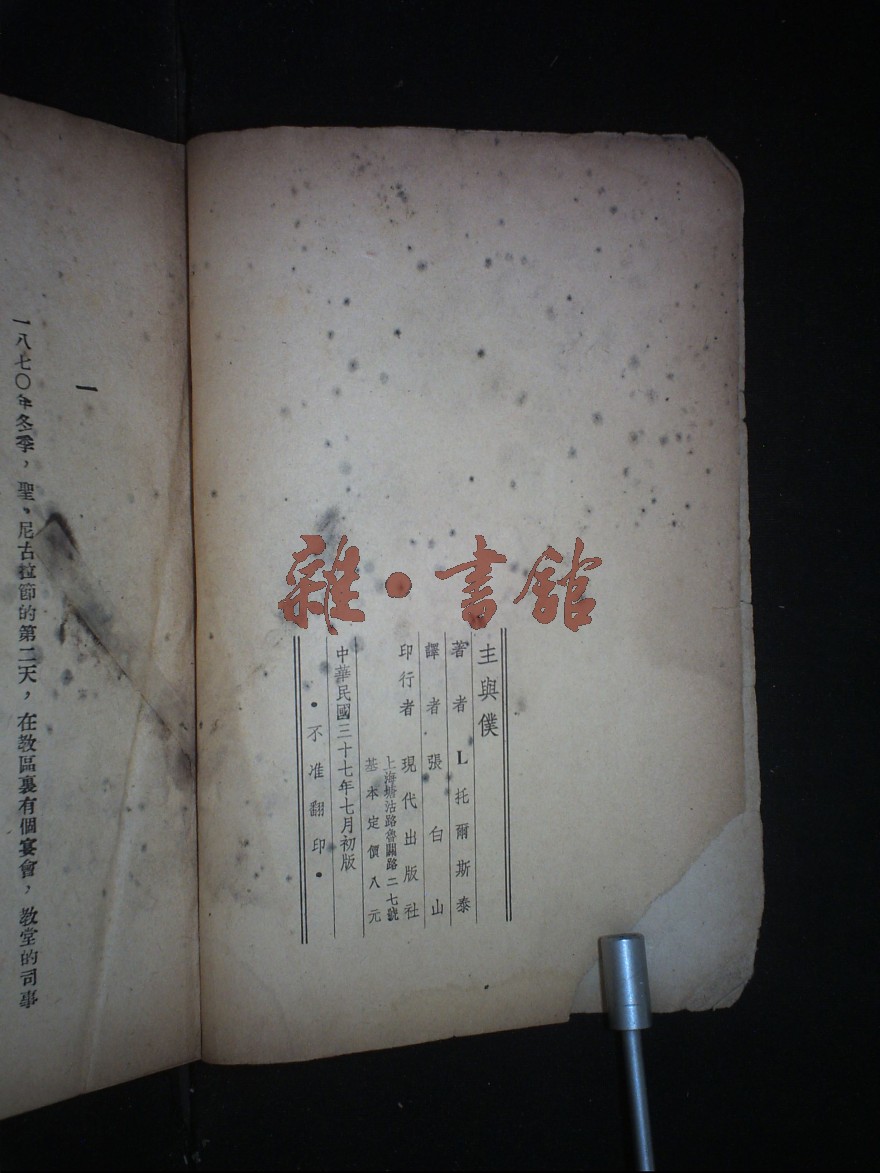 雜·書館
主與僕
著者 L托爾斯泰
譯者 張白山
印行者 現代出版社
上海塘沽路魯關路二七號
基本定價八元
中華民國三十七年七月初版
·不准翻印·
一
一八七〇年冬季，聖、尼古拉節的第二天，在教區裏有個宴會，教堂的司事